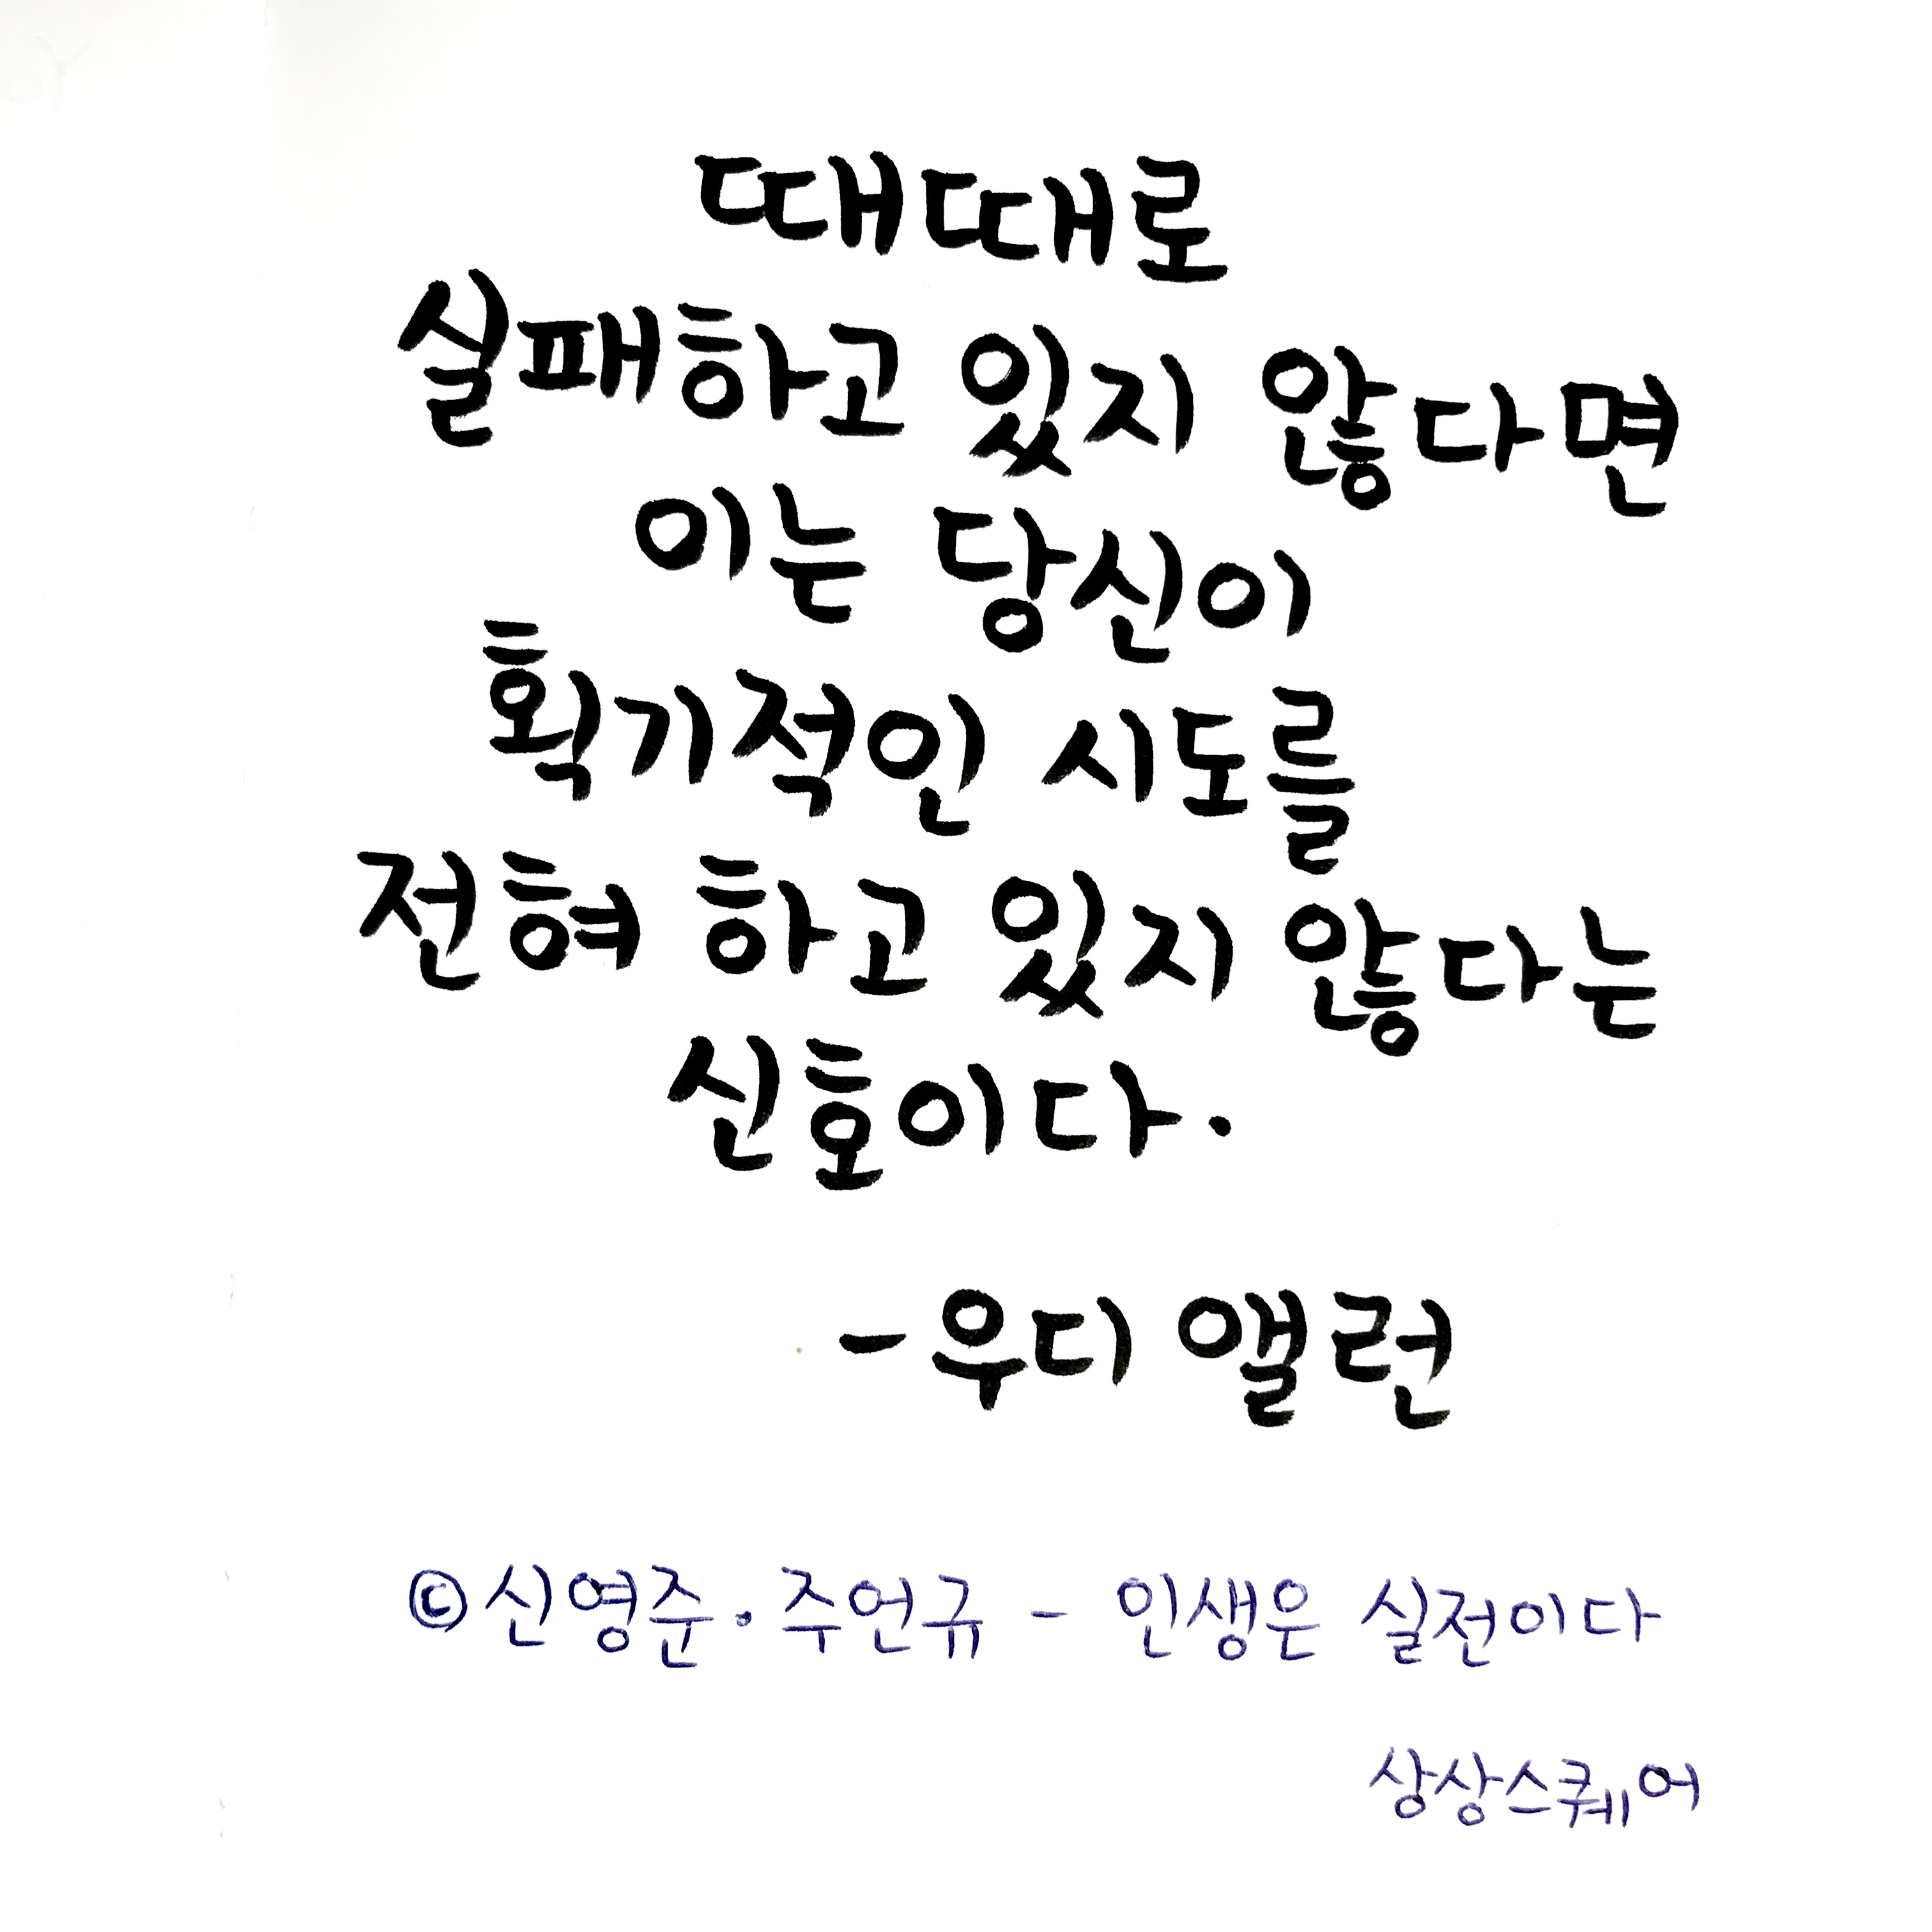 때때로
실패하고 있지 않다면
이는 당신이
획기적인 시도를
전혀 하고 있지 않다는
신호이다.
-우디 앨런
©신영준·주언규 - 인생은 실전이다
상상스퀘어